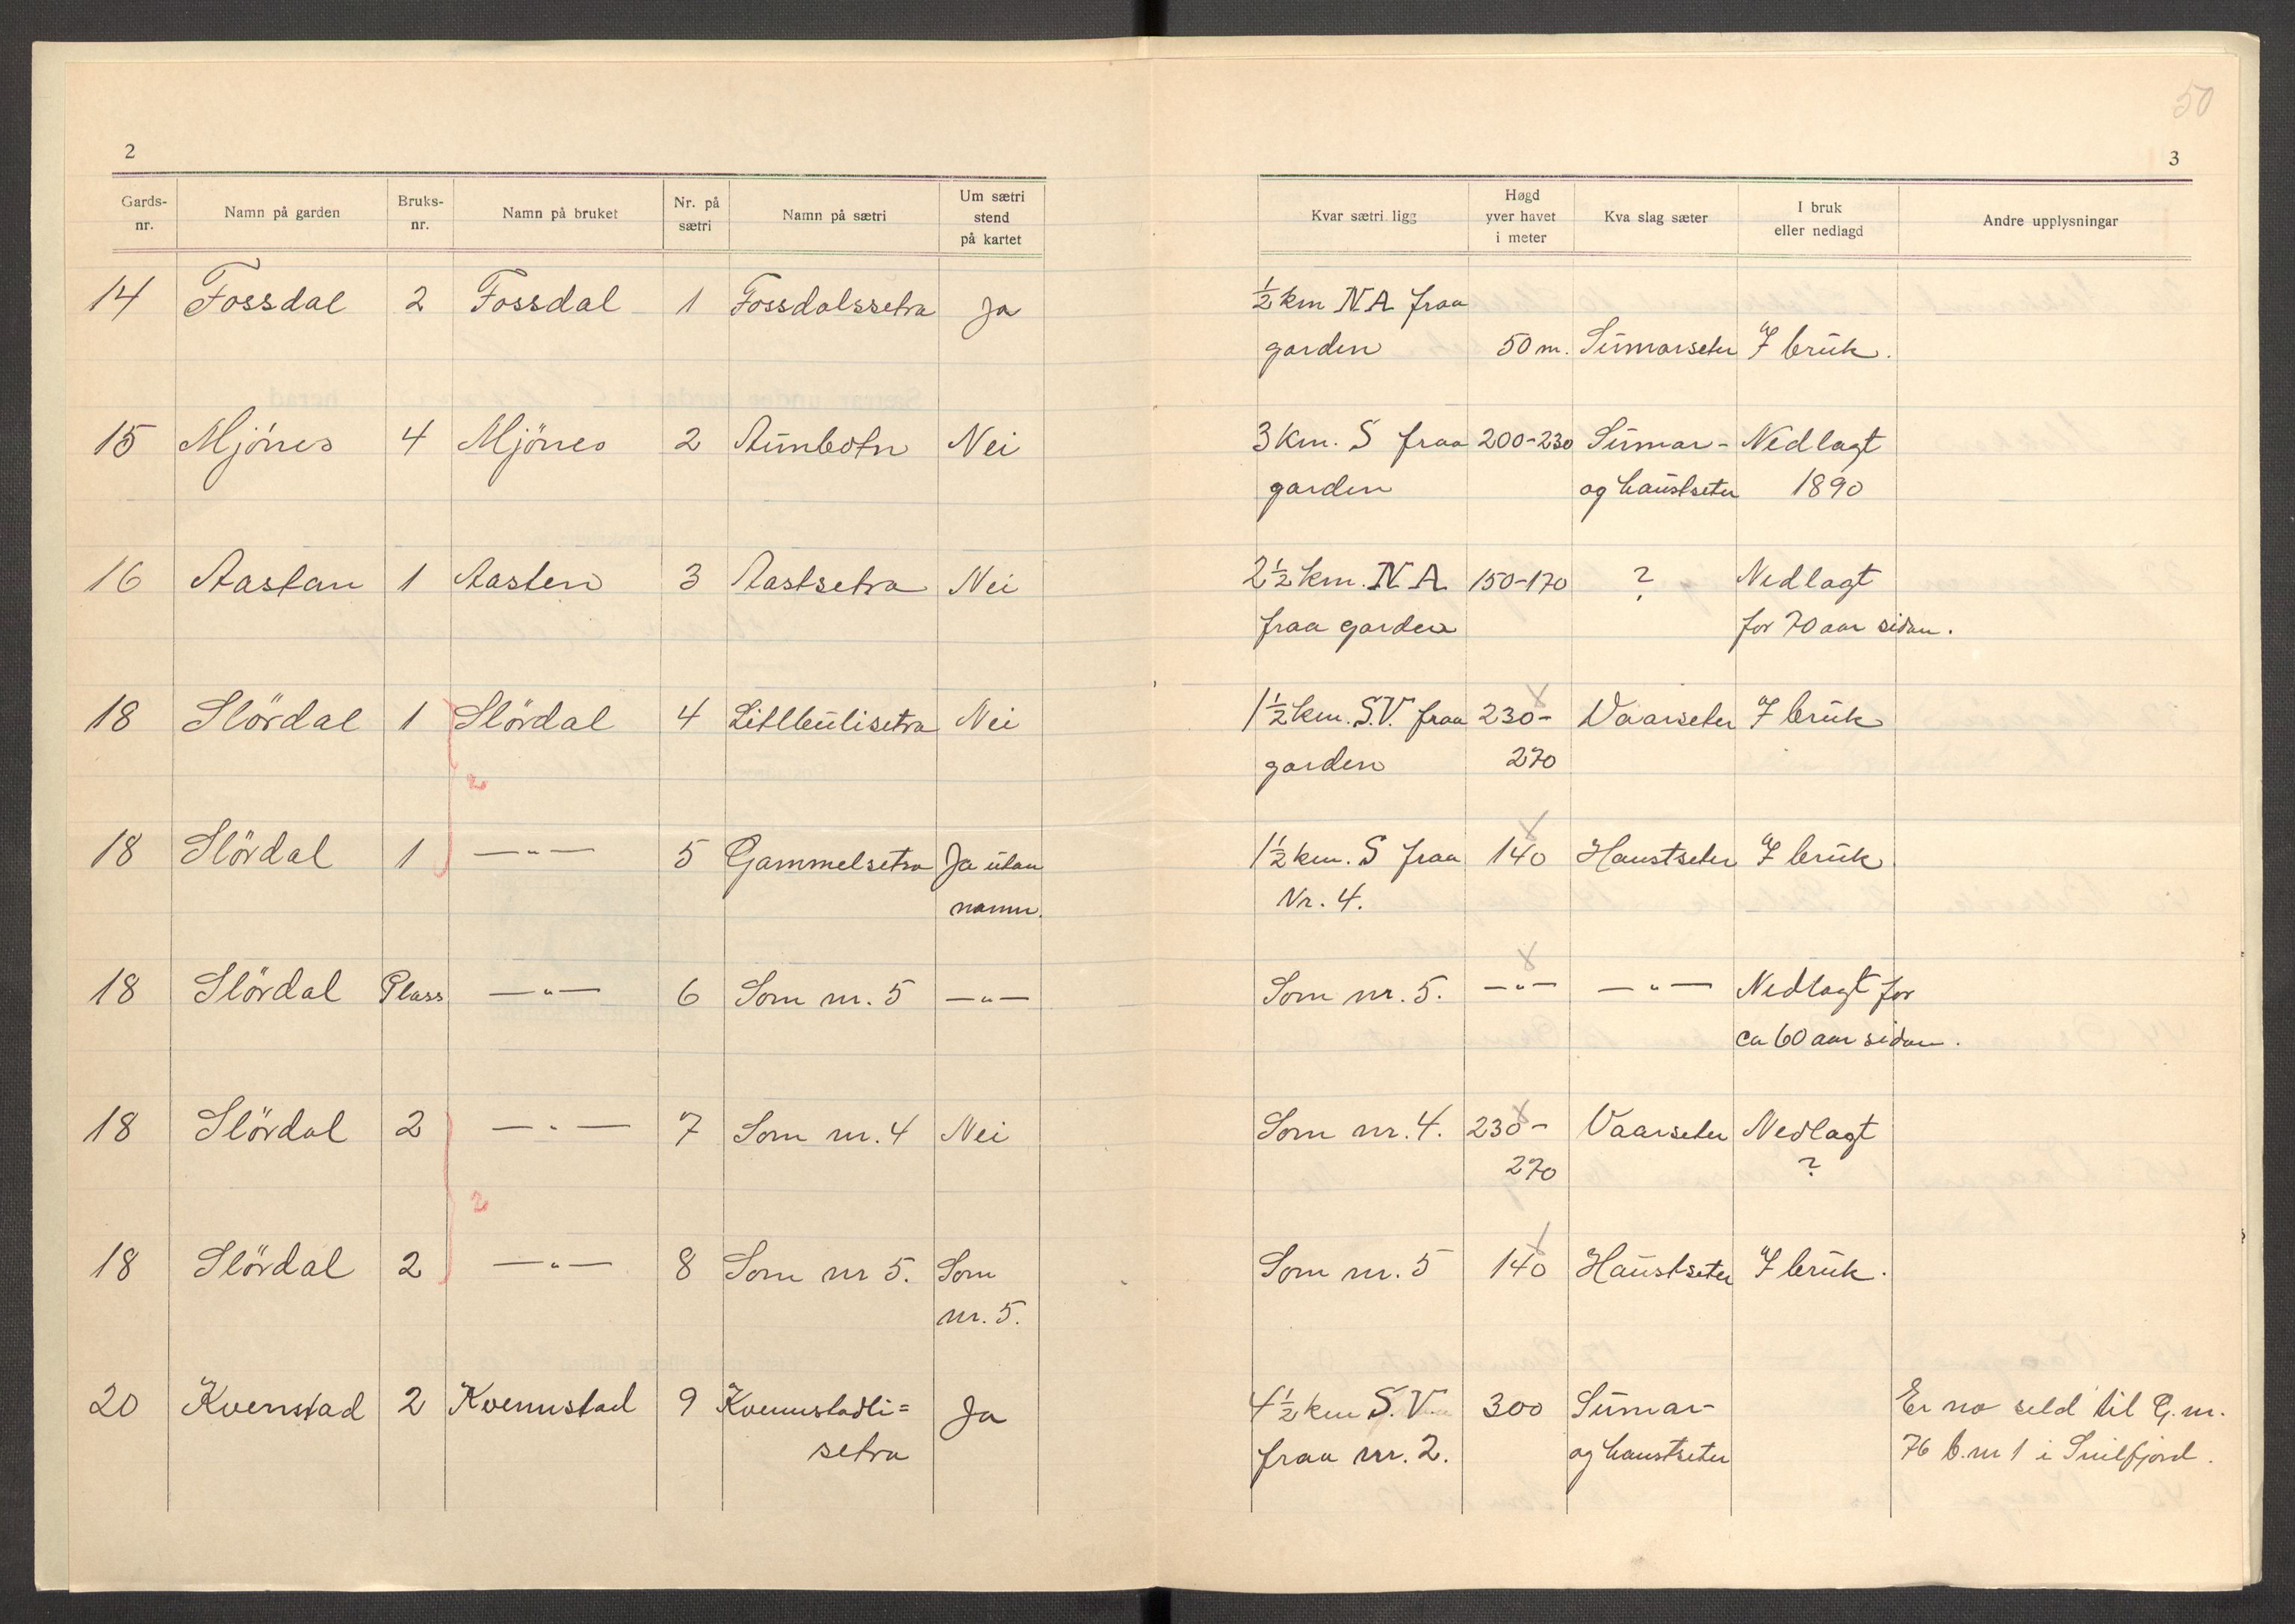 50
2
3
Gards-
nr.
Namn på garden
Bruks-
nr.
Namn på bruket
Nr. på
sætri
Namn på sætri
Um sætri
stend
på kartet
Kvar sætri ligg
Høgd
yver havet
i meter
Kva slag sæter
I bruk
eller nedlagd
Andre upplysningar
14 Fossdal 2 Fossdal 1 Fossdalssetra Ja ½ km N A fraa
garden 50 m. Sumarseter I bruk.
15 Mjönes 4 Mjönes 2 Aunbotn Nei 3 km. S fraa 200-230 Sumar- Nedlagt
garden og haustseter 1890
16 Aastan 1 Aasten 3 Aastsetra Nei 2½ km. N A 150-170 ? Nedlagt
fraa garden for 70 aar sidan.
18 Slördal 1 Slördal 4 Litlbulisetra Nei 1½ km. S.V. fraa 230- Vaarseter I bruk
garden 270
2
18 Slördal 1 —„— 5 Gammelsetra Ja utan 1½ km. S fraa 140 Haustseter I bruk
namn. Nr. 4.
18 Slördal Plass —„— 6 Som nr. 5 —„— Som nr. 5. —„— —„— Nedlagt for
ca 60 aar sidan.
18 Slördal 2 —„— 7 Som nr. 4 Nei Som nr. 4. 230- Vaarseter Nedlagt
270 ?
2
18 Slördal 2 —„— 8 Som nr 5. Som Som nr. 5 140 Haustseter I bruk.
nr. 5.
20 Kvenstad 2 Kvennstad 9 Kvennstadli= Ja 4½ km S.V. 300 Sumar- Er no seld til G.nr.
setra fraa nr. 2. og haustseter 76 b.nr 1 i Snilfjord.